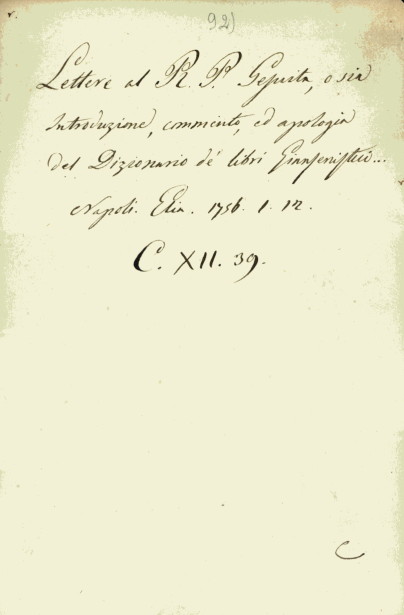 92)
Lettere al R. P. Gesuita, o sia
Introduzione, commento, ed apologia
del Dizionario de' libri Giansenistici...
Napoli. Elia. 1756. 1. 12.
C. XII. 39.
C